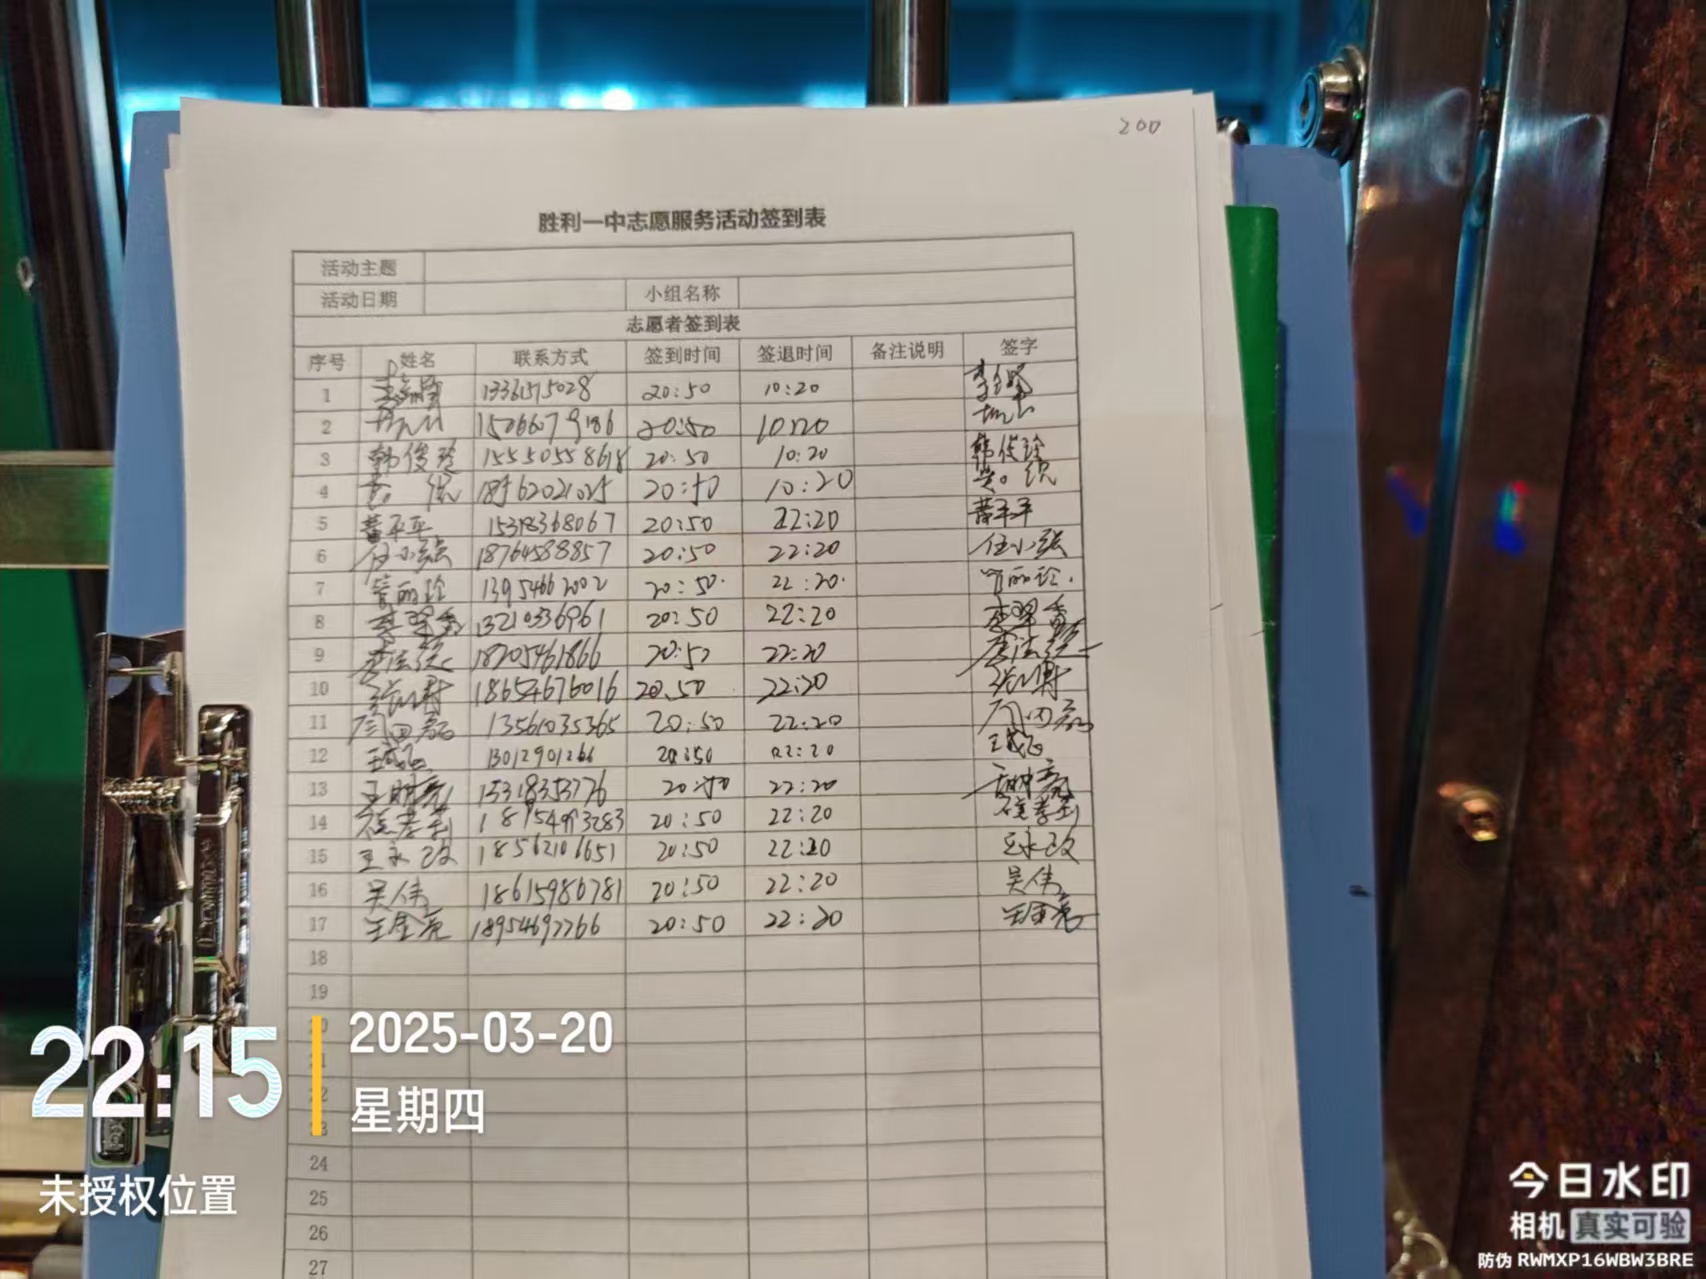 200
胜利一中志愿服务活动签到表
活动主题
活动日期 小组名称
志愿者签到表
序号 姓名 联系方式 签到时间 签退时间 备注说明 签字
1 13361515028 20:50 10:20
2 20:50 10:20
3 韩俊玲 15550558618 20:50 10:20 韩俊玲
4 20:50 10:20
5 董平平 15318368067 20:50 22:20 董平平
6 任小强 18764588857 20:50 22:20 任小强
7 管丽玲 13954662002 20:50. 22:20. 管丽玲.
8 李翠香 13210336961 20:50 22:20 李翠香
9 18205461866 20:50 22:20
10 18654676016 20:50 22:20
11 周田磊 13561035365 20:50 22:20 周田磊
12 13012901266 20:50 22:20
13 王明亮 15318353776 20:50 22:20 王明亮
14 20:50 22:20
15 王永政 18562106651 20:50 22:20 王永政
16 吴伟 18615986781 20:50 22:20 吴伟
17 王金亮 18954692766 20:50 22:20 王金亮
18
19
24
25
26
27
22:15
2025-03-20
星期四
未授权位置
今日水印
相机 真实可验
防伪 RWMXP16WBW3BRE